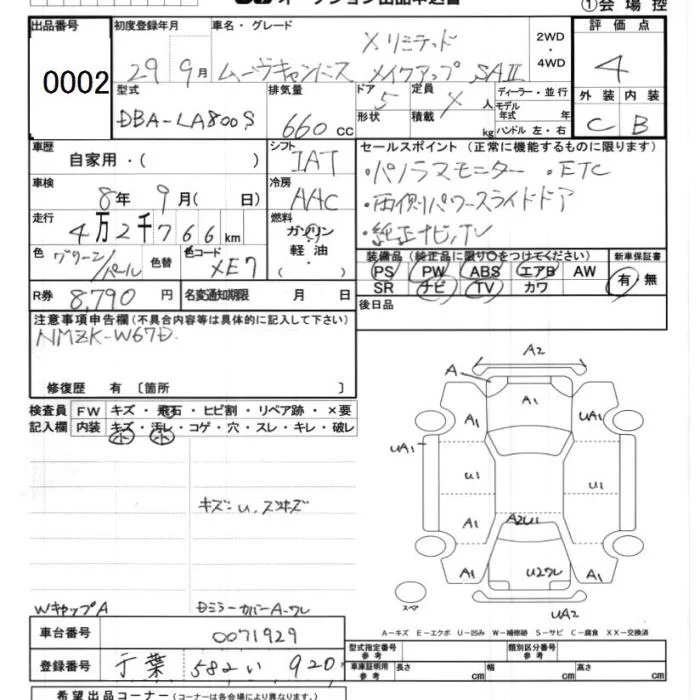 ①会場控
出品番号 初度登録年月 車名・グレード 評価点
0002 29 9月 ムーヴキャンバス Xリミテッド メイクアップ SAⅡ 2WD・4WD 4
型式 排気量 ドア 定員 ディーラー・並行 外装 内装
DBA-LA800S 660cc 5 人 モデル年式 年 C B
形状 積載 kg ハンドル 左・右
車歴 シフト セールスポイント (正常に機能するものに限ります)
自家用・( ) IAT ・パノラマモニター ・ETC
車検 冷房
8年 9月( 日) AAC ・両側パワースライドドア
走行 燃料
4万2千766km ガソリン ・純正ナビ,TV
色 色替 色コード 軽油
グリーン/パール XE7 ・( )
装備品 (純正品に限り○をつけてください) 新車保証書
PS PW ABS エアB AW 有・無
SR ナビ TV カワ
R券 8,790円 名変通知期限 月 日 後日品
注意事項申告欄 (不具合内容等は具体的に記入して下さい)
NMZK-W67D
修復歴 有 〔箇所 〕
検査員 FW キズ・飛石・ヒビ割・リペア跡・×要
記入欄 内装 キズ・汚レ・コゲ・穴・スレ・キレ・破レ
小 小
A2
A A1
A1 A1
UA1 UA1
U1 U1
A1 A2U1
A1 U2ワレ A1
スペア UA2
キズ:U,スリキズ
WキャップA Dミラーカバー A・ワレ
A-キズ E-エクボ U-凹み W-補修跡 S-サビ C-腐食 XX-交換済
車台番号 0071929
登録番号 千葉 582 い 920
型式指定番号 参考 類別区分番号 参考
車庫証明用 参考 長さ cm 幅 cm 高さ cm
希望出品コーナー (コーナーは各会場により異なります。)